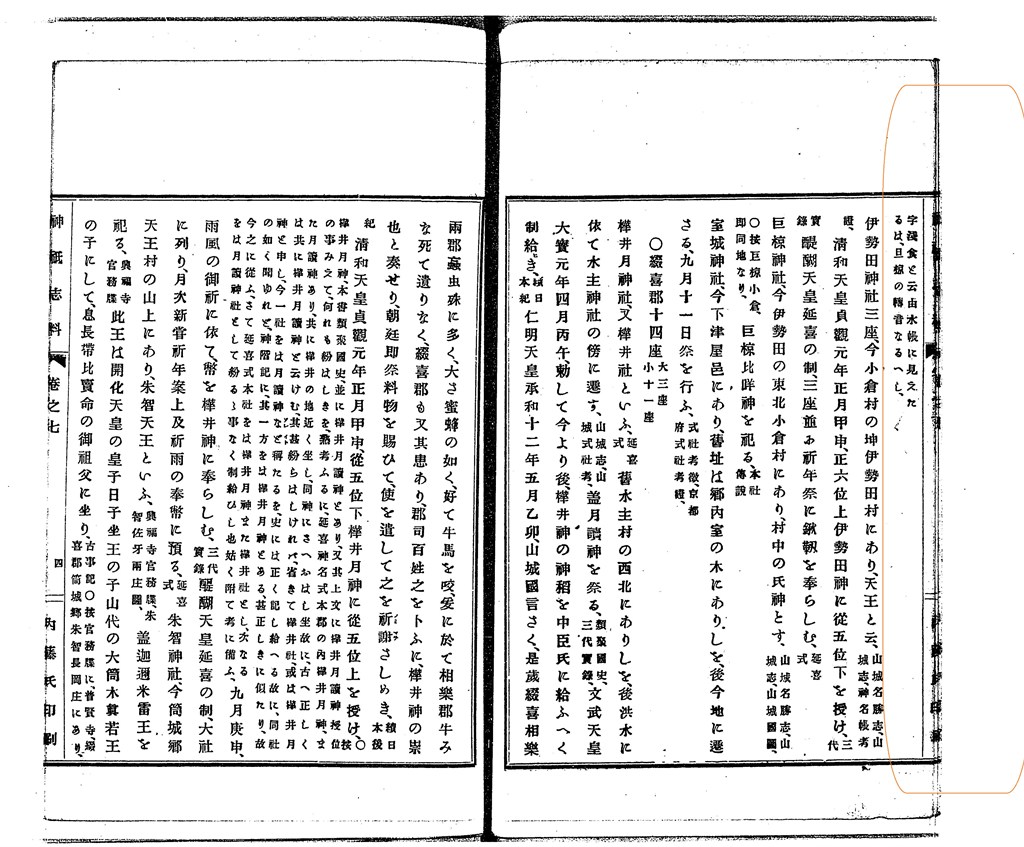 字濅食と云由水帳に見えた
るは、旦椋の轉音なるへし、
伊勢田神社三座、今小倉村の坤伊勢田村にあり、天王と云、山城名勝志、山城志、神名帳考
證、淸和天皇貞觀元年正月甲申、正六位上伊勢田神に從五位下を授け、三代
實錄醍醐天皇延喜の制、三座並お祈年祭に鍬靱を奉らしむ、延喜式
巨椋神社、今伊勢田の東北小倉村にあり、村中の氏神とす、山城名勝志、山城志、山城國圖、
〇按巨椋小倉、即同地なり、巨椋比咩神を祀る、本社傳說
室城神社、今下津屋邑にあり、舊址は鄕內室の木にありしを、後今地に遷
さる、九月十一日祭を行ふ、式社考徵、京都府式社考證、
〇綴喜郡十四座大三座小十一座
樺井月神社、又樺井社といふ、延喜式舊水主村の西北にありしを、後洪水に
依て水主神社の傍に遷す、山城志、山城式社考、盖月讀神を祭る、類聚國史、三代實錄、文武天皇
大寶元年四月丙午、勅して今より後、樺井神の神稻を中臣氏に給ふへく
制給ひき、續日本紀仁明天皇承和十二年五月乙卯、山城國言さく、是歲綴喜相樂
兩郡蝱虫殊に多く、大さ蜜蜂の如く、好て牛馬を咬、爰に於て相樂郡牛み
な死て遺りなく、綴喜郡も又其患あり、郡司百姓之を卜ふに、樺井神の祟
也と奏せり、朝廷卽祭料物を賜ひて、使を遣して之を祈謝さしめき、續日本後
紀淸和天皇貞觀元年正月甲申、從五位下樺井月神に從五位上を授け、〇按
樺井月神本書類聚國史、並に樺井月讀神とあり、又其上文に樺井月讀神授位
の事みえて、何れも紛はしきを、熟考ふるに、延喜神名式本郡の內樺井月神、ま
た月讀神あり、共に樺井の地近く坐し、同神にさへおはし坐故に、古へ正しく
は共に樺井月讀神と云けむ、其甚紛らはしけれバ、省きて樺井社、或は樺井月
神と申し、今一社をは月讀神など稱たるを、史には正く記し給へる故に、同社
の如く聞ゆれと、神階記に、其一方をは樺井月神とある、甚正しきに似たり、故
今之に從ふ、さて延喜式本社をは樺井月神また樺井社とし、次なる
をは月讀神社として紛るゝ事なく制給ひしも姑く附て考に備ふ、九月庚申、
雨風の御祈に依て、幣を樺井神に奉らしむ、三代實錄醍醐天皇延喜の制、大社
に列り、月次新嘗祈年案上及祈雨の奉幣に預る、延喜式朱智神社、今筒城鄕
天王村の山上にあり、朱智天王といふ、興福寺官務牒、朱智佐牙兩庄圖、盖迦邇米雷王を
祀る、興福寺官務牒此王は開化天皇の皇子日子坐王の子山代の大筒木眞若王
の子にして、息長帶比賣命の御祖父に坐り、古事記〇按官務牒に普賢寺、綴喜郡筒城鄕朱智長岡庄にあり、
神祇志料
卷之七
四
內藤氏印刷